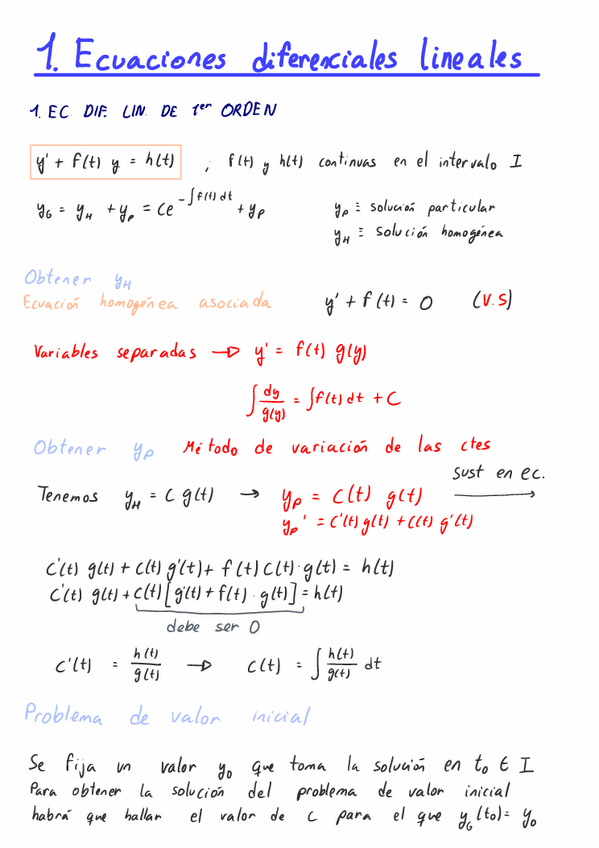 1. Ecuaciones diferenciales lineales
1. EC. DIF. LIN. DE 1er ORDEN
y' + f(t) y = h(t) ; f(t) y h(t) continuas en el intervalo I
y_G = y_H + y_p = Ce^{-∫f(t)dt} + y_p
y_p ≡ solución particular
y_H ≡ solución homogénea
Obtener y_H
Ecuación homogénea asociada y' + f(t) = 0 (V.S)
Variables separadas → y' = f(t) g(y)
∫ dy/g(y) = ∫f(t) dt + C
Obtener y_p Método de variación de las ctes
Tenemos y_H = C g(t) → y_p = C(t) g(t) sust en ec. →
y_p' = C'(t) g(t) + C(t) g'(t)
C'(t) g(t) + C(t) g'(t) + f(t) C(t)·g(t) = h(t)
C'(t) g(t) + C(t)[g'(t) + f(t)·g(t)] = h(t)
debe ser 0
C'(t) = h(t)/g(t) → C(t) = ∫ h(t)/g(t) dt
Problema de valor inicial
Se fija un valor y_0 que toma la solución en t_0 ∈ I
Para obtener la solución del problema de valor inicial
habrá que hallar el valor de C para el que y_G(t_0) = y_0